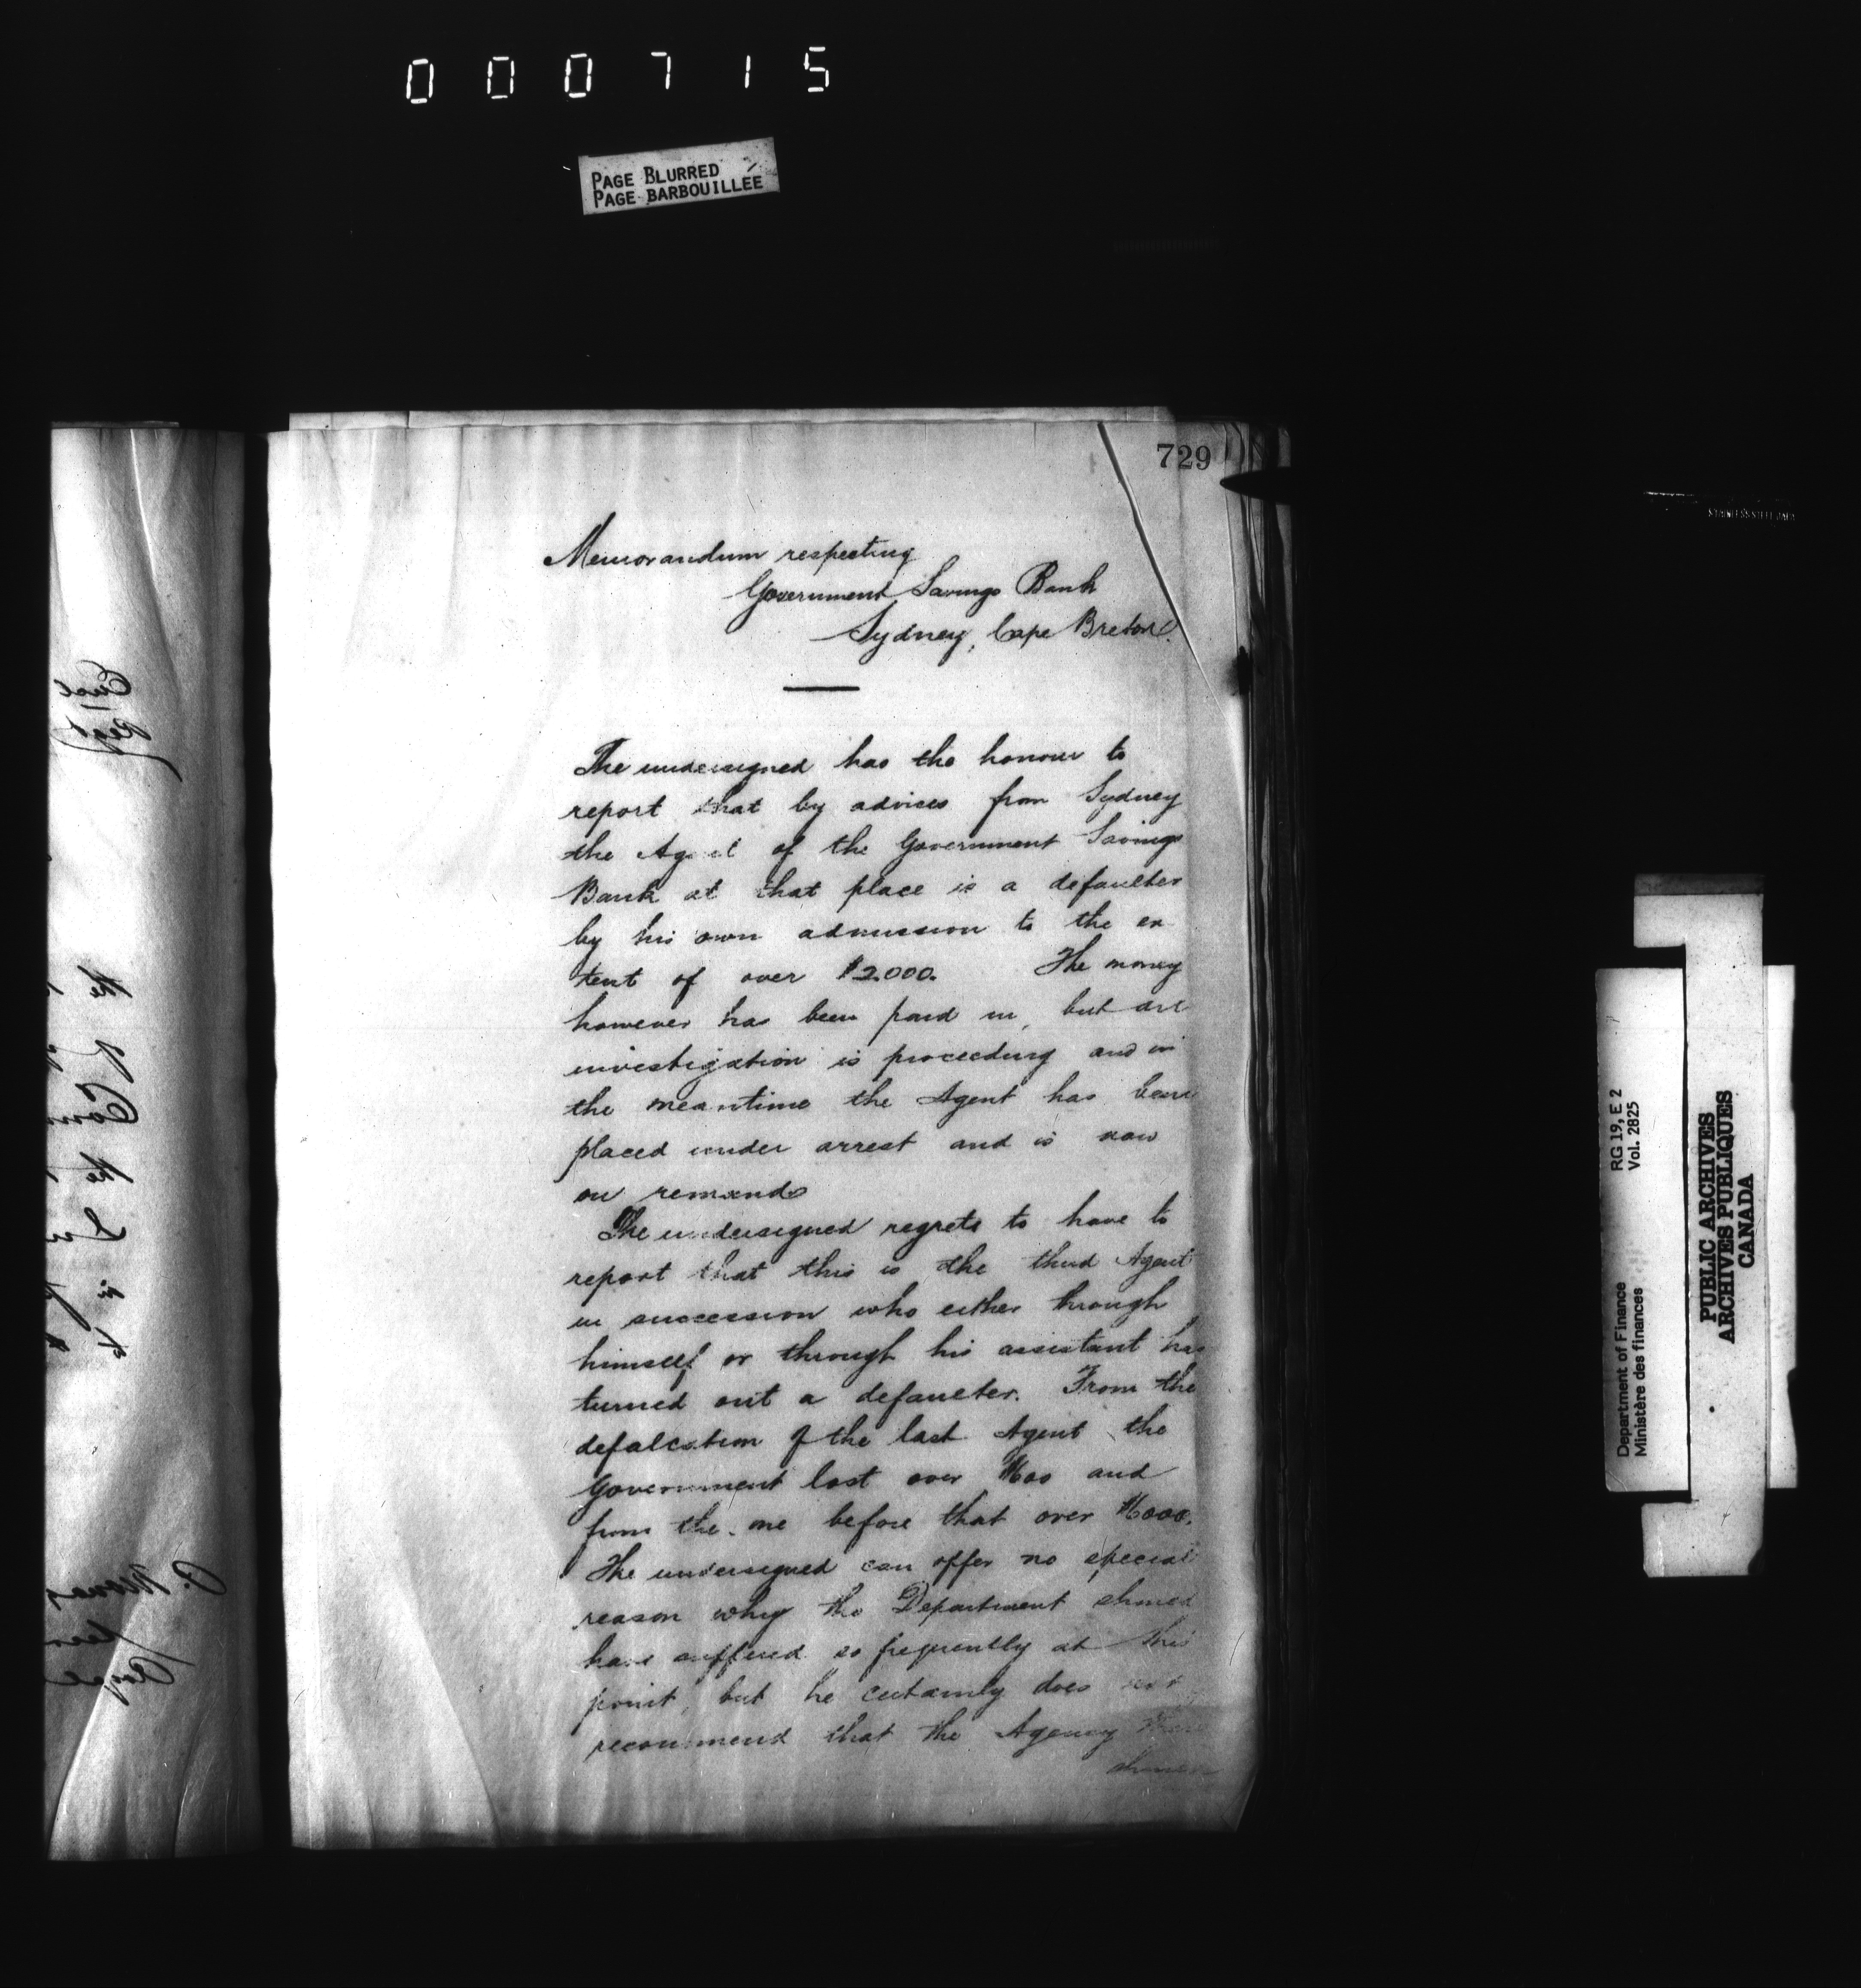 000715
PAGE BLURRED
PAGE BARBOUILLÉE
729
Memorandum respecting
Government Savings Bank
Sydney, Cape Breton.
The undersigned has the honour to
report that by advices from Sydney
the Agent of the Government Savings
Bank at that place is a defaulter
by his own admission to the ex
tent of over $2.000. The money
however has been paid in, but an
investigation is proceeding and in
the meantime the Agent has been
placed under arrest and is now
on remand
The undersigned regrets to have to
report that this is the third Agent
in succession who either through
himself or through his assistant has
turned out a defaulter. From the
defalcation of the last Agent the
Government lost over and
from the one before that over
The undersigned can offer no special
reason why the Department should
have suffered so frequently at this
point, but he certainly does not
recommend that the Agency there
should
Department of Finance RG 19, E 2
Ministère des finances Vol. 2825
PUBLIC ARCHIVES
ARCHIVES PUBLIQUES
CANADA